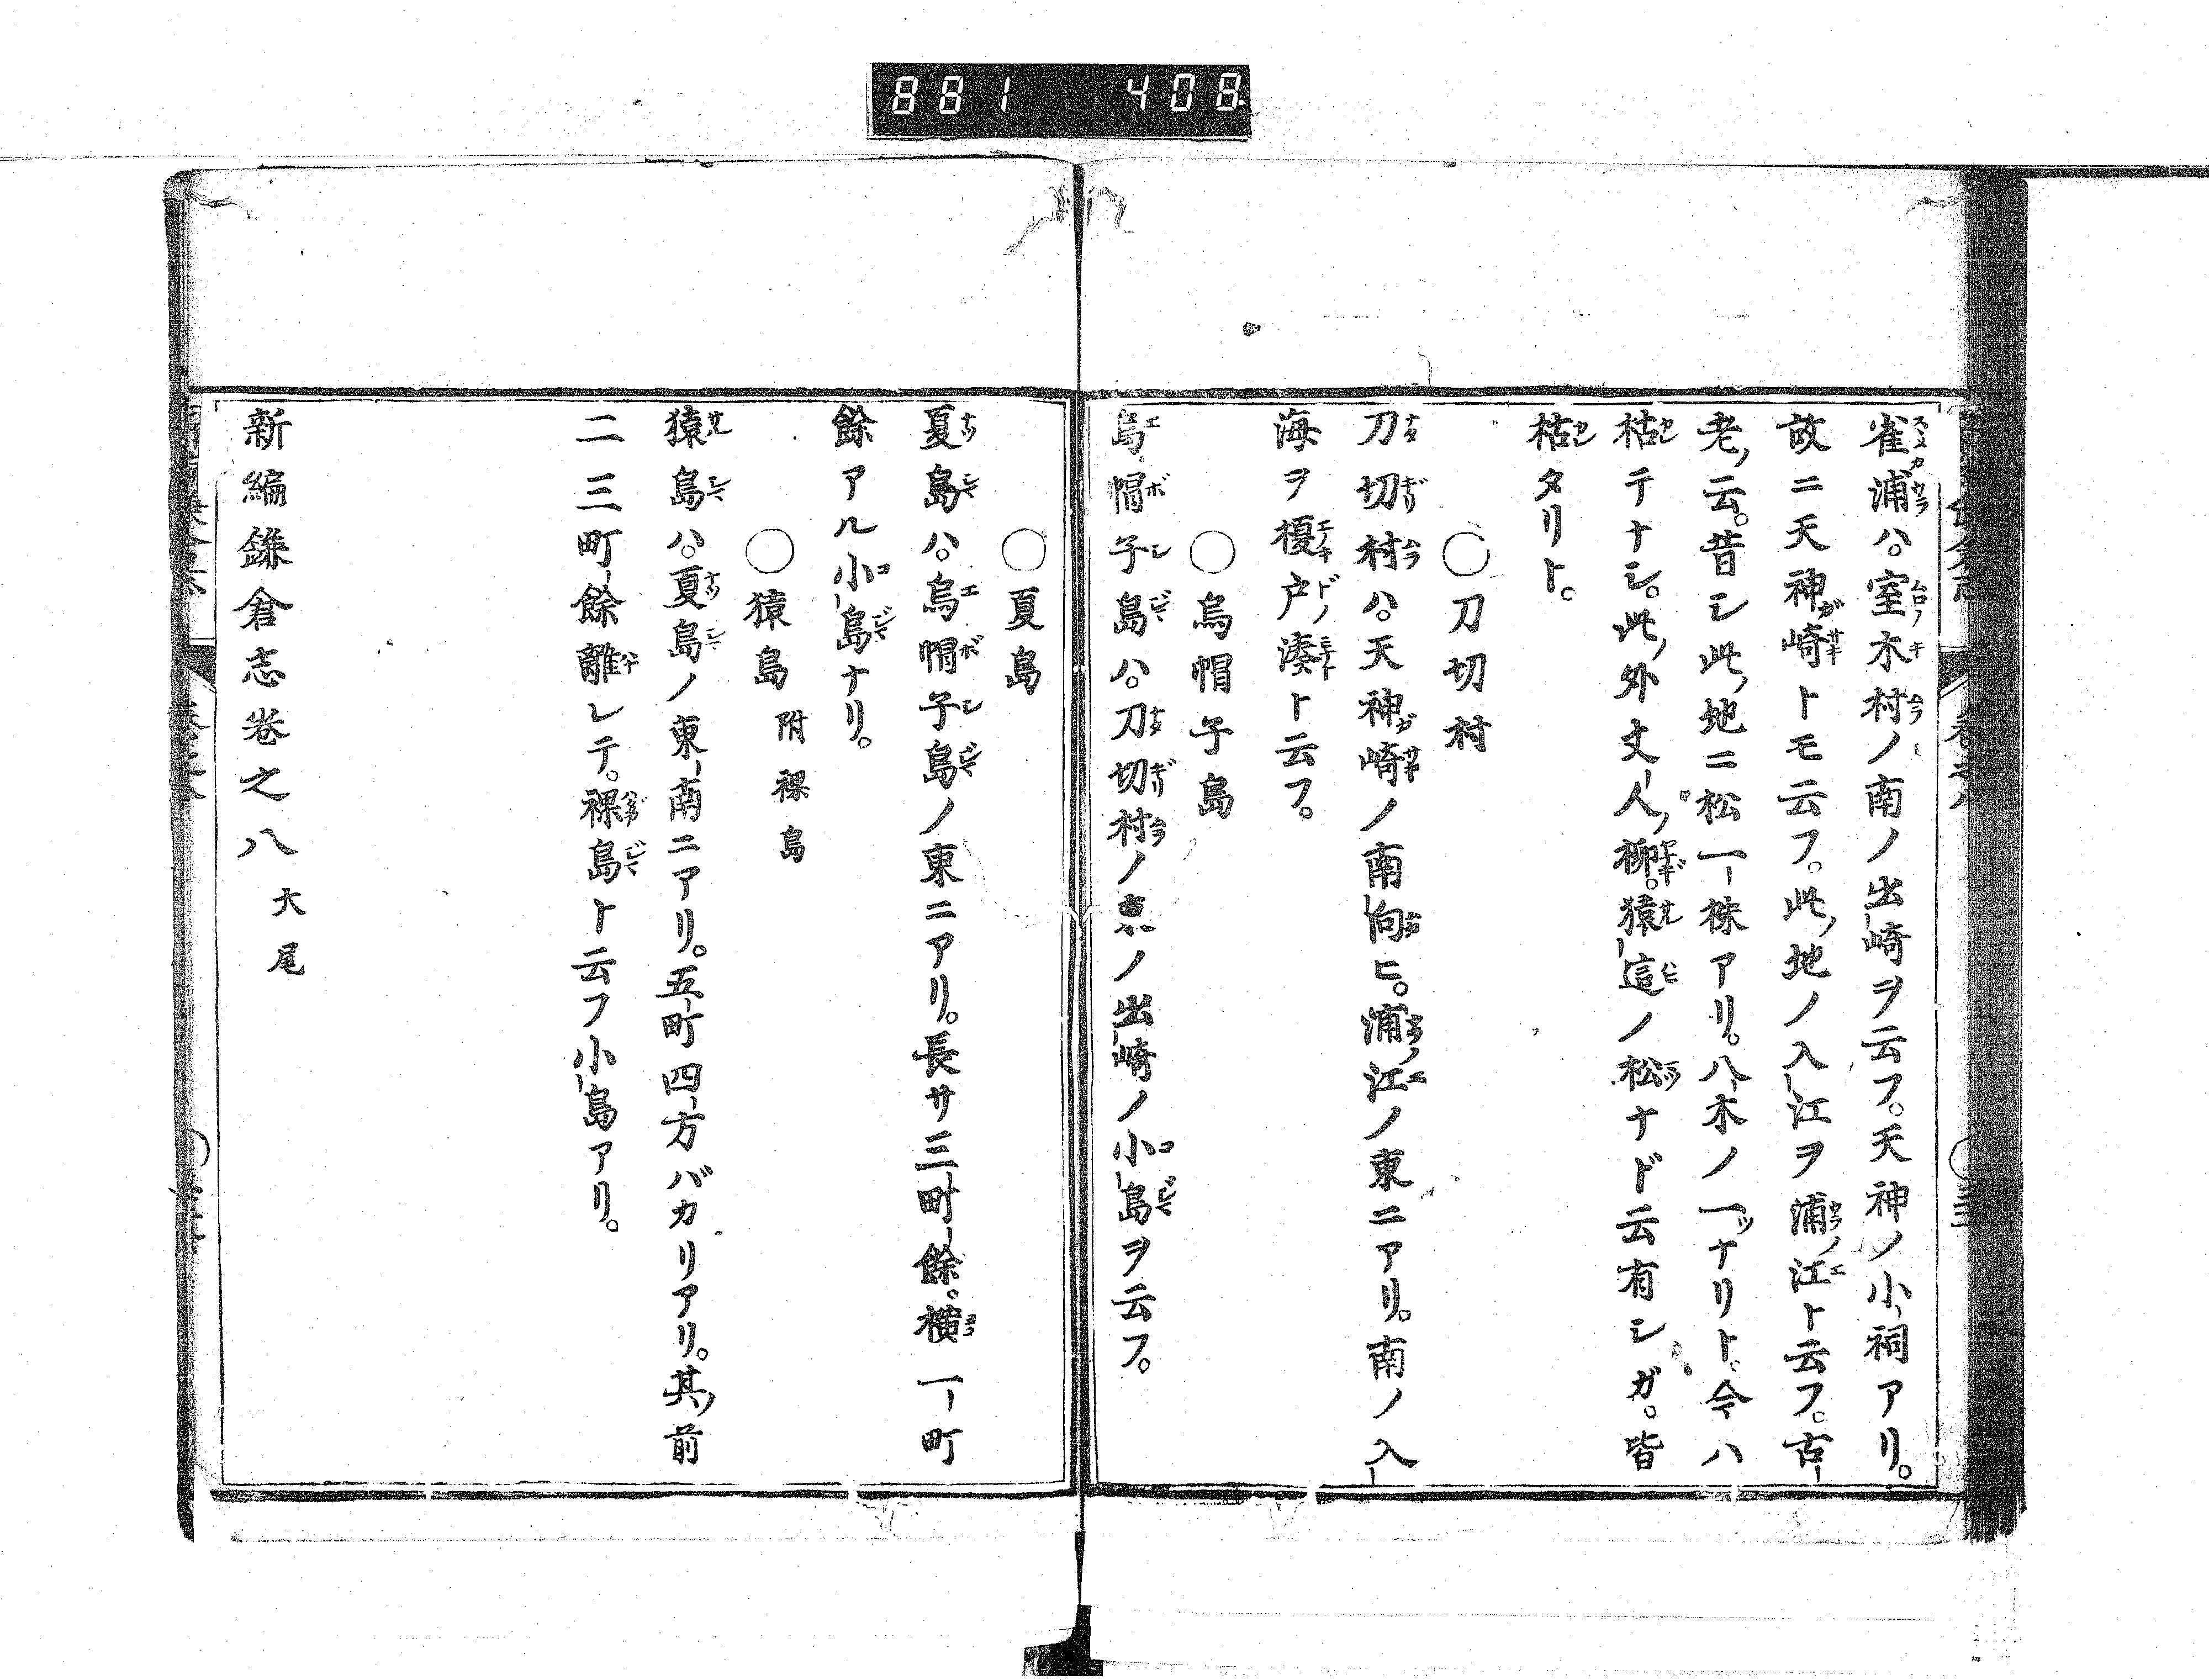 881 408
雀浦ハ。室木村ノ南ノ出崎ヲ云フ。天神ノ小祠アリ。
故ニ天神崎トモ云フ。此地ノ入江ヲ浦江ト云フ。古
老ノ云。昔シ此地ニ松一株アリ。八木ノ一ツナリト。今ハ
枯テナシ。此外丈人柳。猿這ノ松ナド云有シガ。皆
枯タリト。
○刀切村
刀切村ハ。天神崎ノ南向ヒ。浦江ノ東ニアリ。南ノ入
海ヲ榎戸湊ト云フ。
○烏帽子島
烏帽子島ハ。刀切村ノ東ノ出崎ノ小島ヲ云フ。
○夏島
夏島ハ。烏帽子島ノ東ニアリ。長サ三町餘。横一町
餘アル小島ナリ。
○猿島 附裸島
猿島ハ。夏島ノ東南ニアリ。五町四方バカリアリ。其前
二三町餘離レテ。裸島ト云フ小島アリ。
新編鎌倉志卷之八 大尾